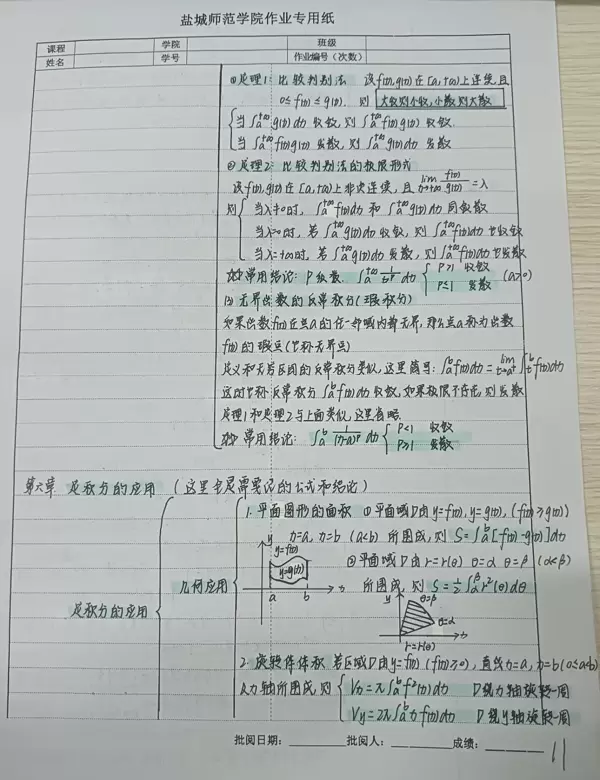 盐城师范学院作业专用纸
课程 学院 班级
姓名 学号 作业编号（次数）
①定理1：比较判别法 设f(x),g(x)在[a,+∞)上连续,且
0≤f(x)≤g(x). 则 大收则小收,小散则大散
当∫ₐ⁺∞g(x)dx 收敛,则∫ₐ⁺∞f(x)g(x) 收敛.
当∫ₐ⁺∞f(x)g(x) 发散,则∫ₐ⁺∞g(x)dx 发散
②定理2：比较判别法的极限形式
设f(x),g(x)在[a,+∞)上非负连续,且 lim x→+∞ f(x)/g(x) =λ
则 当λ≠0时, ∫ₐ⁺∞f(x)dx 和 ∫ₐ⁺∞g(x)dx 同敛散
当λ=0时, 若∫ₐ⁺∞g(x)dx 收敛, 则∫ₐ⁺∞f(x)dx也收敛
当λ=+∞时, 若∫ₐ⁺∞g(x)dx发散, 则∫ₐ⁺∞f(x)dx也发散
常用结论: P级数. ∫ₐ⁺∞ 1/xᴾ dx { P>1 收敛 P≤1 发散 (a>0)
(2) 无界函数的反常积分(瑕积分)
如果函数f(x)在点a的任一邻域内都无界,那么点a称为函数
f(x)的瑕点(也称无界点)
定义和无穷区间的反常积分类似,这里简写: ∫ₐᵇf(x)dx = lim t→a⁺ ∫ₜᵇf(x)dx
这时也称反常积分∫ₐᵇf(x)dx收敛,如果极限不存在,则发散
定理1和定理2与上面类似,这里省略.
常用结论: ∫ₐᵇ 1/(x-a)ᴾ dx { P<1 收敛 P≥1 发散
第六章 定积分的应用 (这里全是需要记的公式和结论)
定积分的应用
几何应用
1. 平面图形的面积 ①平面域D由y=f(x),y=g(x),(f(x)≥g(x))
x=a, x=b (a<b) 所围成,则 S=∫ₐᵇ[f(x)-g(x)]dx
y y=f(x) y=g(x) a b x
②平面域D由r=r(θ) θ=α θ=β (α<β)
所围成,则 S=½∫αᵝr²(θ)dθ
y θ=β θ=α x r=r(θ)
2. 旋转体体积 若区域D由y=f(x) (f(x)≥0), 直线x=a, x=b (0≤a<b)
及x轴所围成,则 Vx=π∫ₐᵇf²(x)dx D绕x轴旋转一周
Vy=2π∫ₐᵇxf(x)dx D绕y轴旋转一周
批阅日期: 批阅人: 成绩:
11